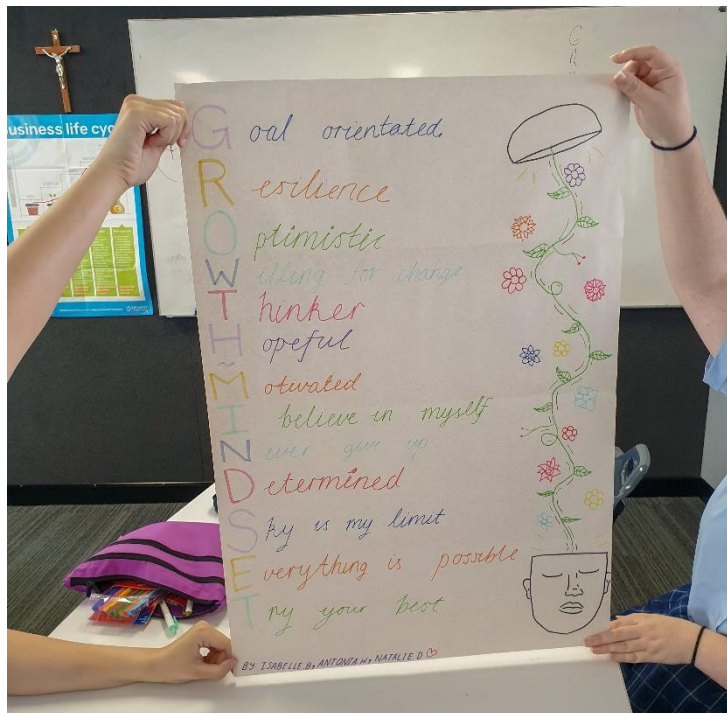 Business life cyc
Goal orientated.
Resilience
Optimistic
Willing for change
Thinker
Hopeful
~
Motivated
I believe in myself
Never give up
Determined
Sky is my limit
Everything is possible
Try your best
BY: ISABELLE B, ANTONIA H, NATALIE D ♡